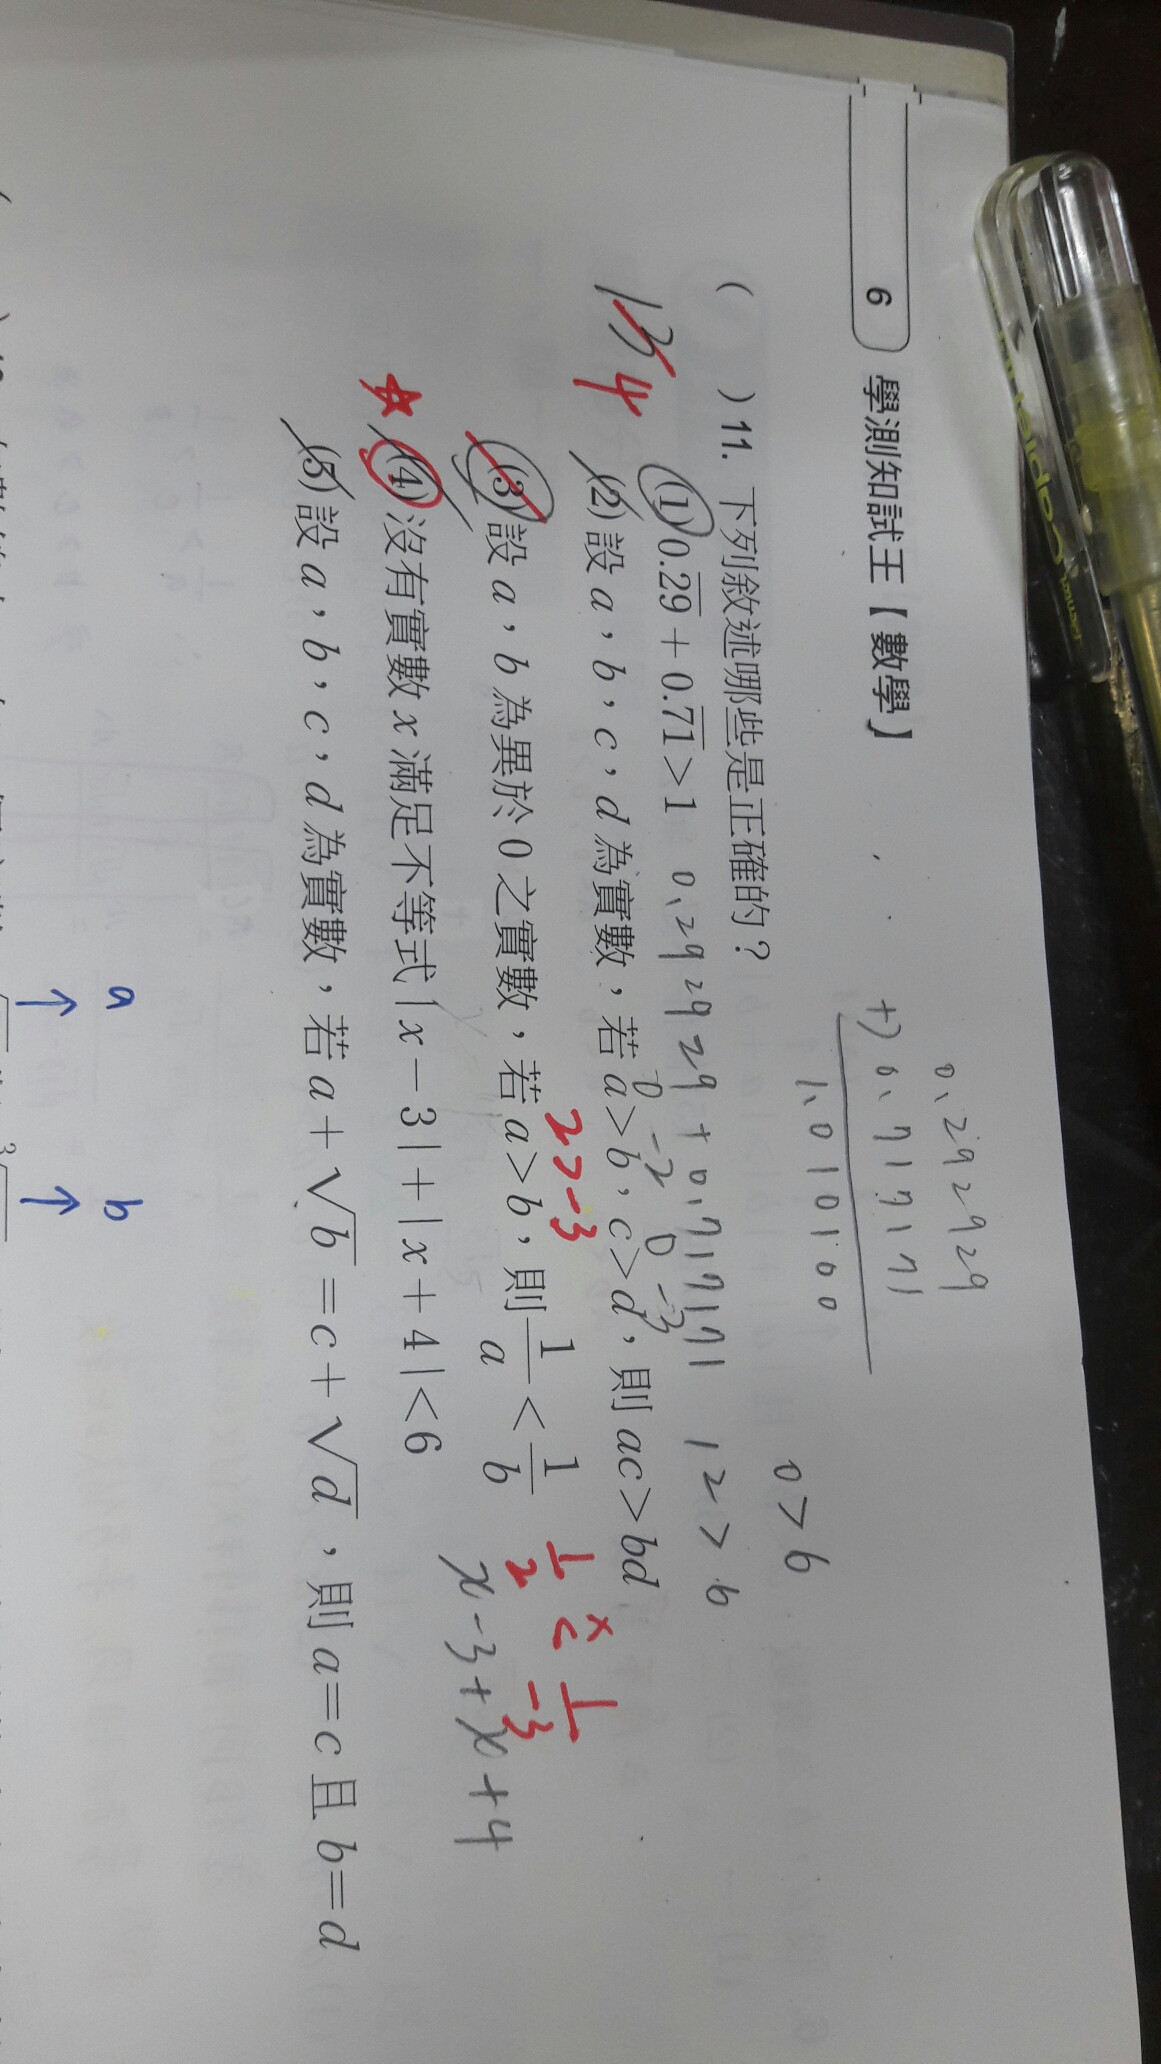 6 學測知試王【數學】
0.292929
+) 0.717171
1.010100
0>6
( ) 11. 下列敘述哪些是正確的？
134
(1) 0.\overline{29} + 0.\overline{71} > 1 0.292929 + 0.717171 12>6
0 -2 0 -3
(2) 設 a，b，c，d 為實數，若 a>b，c>d，則 ac>bd
2>-3
(3) 設 a，b 為異於 0 之實數，若 a>b，則 1/a < 1/b 1/2 < 1/-3
(4) 沒有實數 x 滿足不等式 |x-3|+|x+4|<6 x-3+x+4
(5) 設 a，b，c，d 為實數，若 a+√b=c+√d，則 a=c 且 b=d
a b